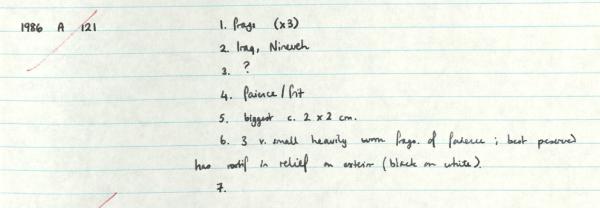 1986 A 121
1. frags (x3)
2. Iraq, Nineveh
3. ?
4. faience / frit
5. biggest c. 2 x 2 cm.
6. 3 v. small heavily worn frags. of faience ; best preserved
has motif in relief on exterior (black on white).
7.